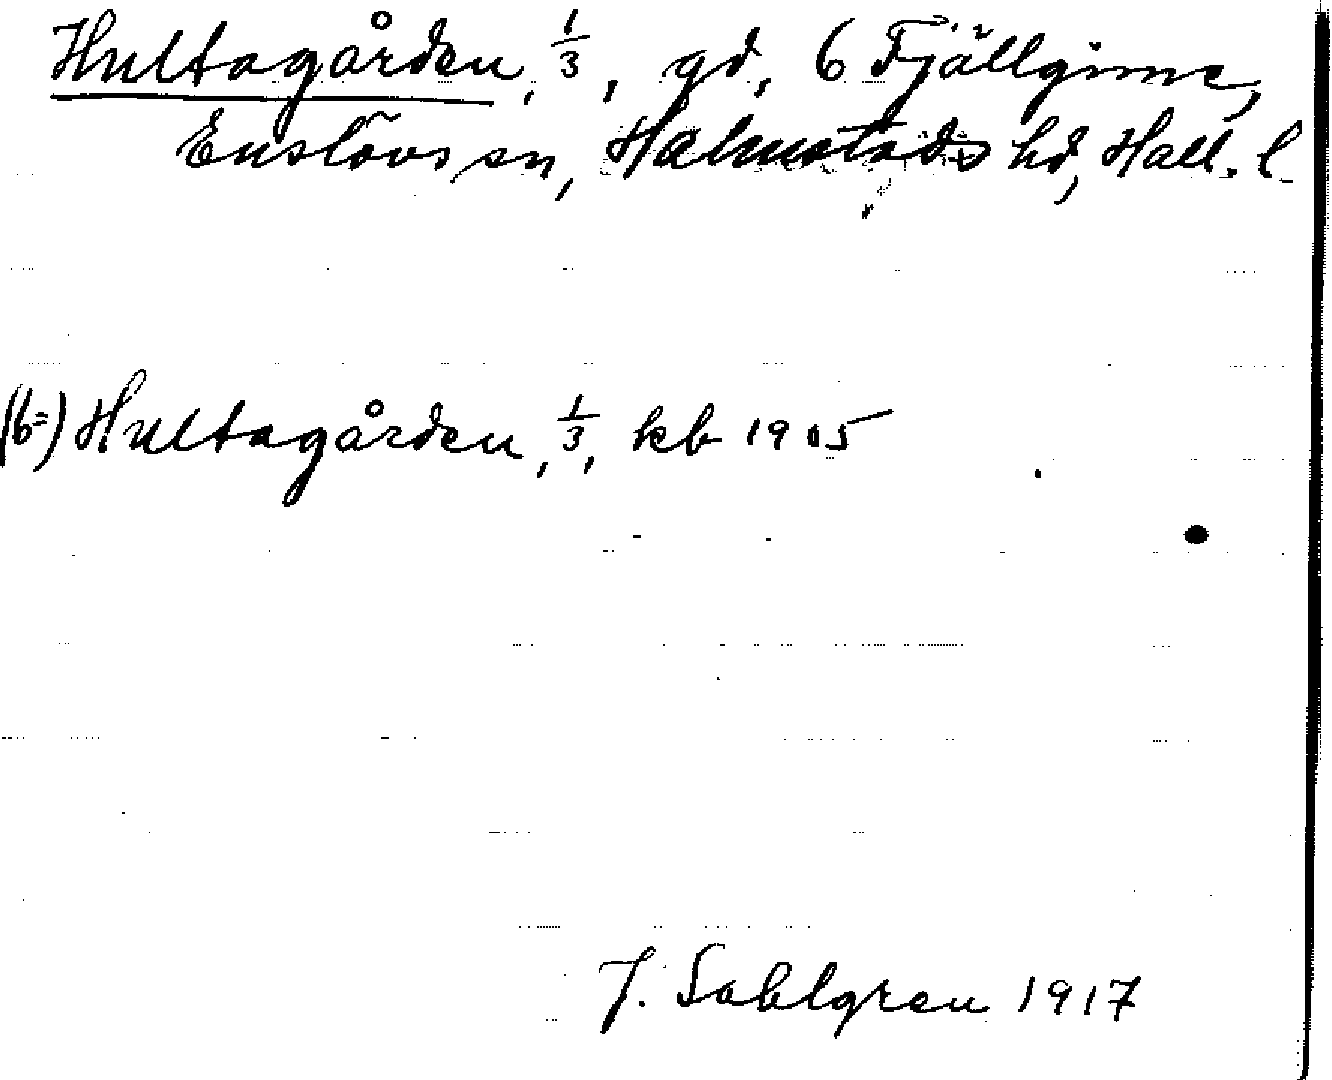 Hultagården, 1/3, gd, 6 Fjällgime,
Enslövs sn, Halmstads hd, Hall. l.
(6=) Hultagården, 1/3, kb 1905
J. Sahlgren 1917